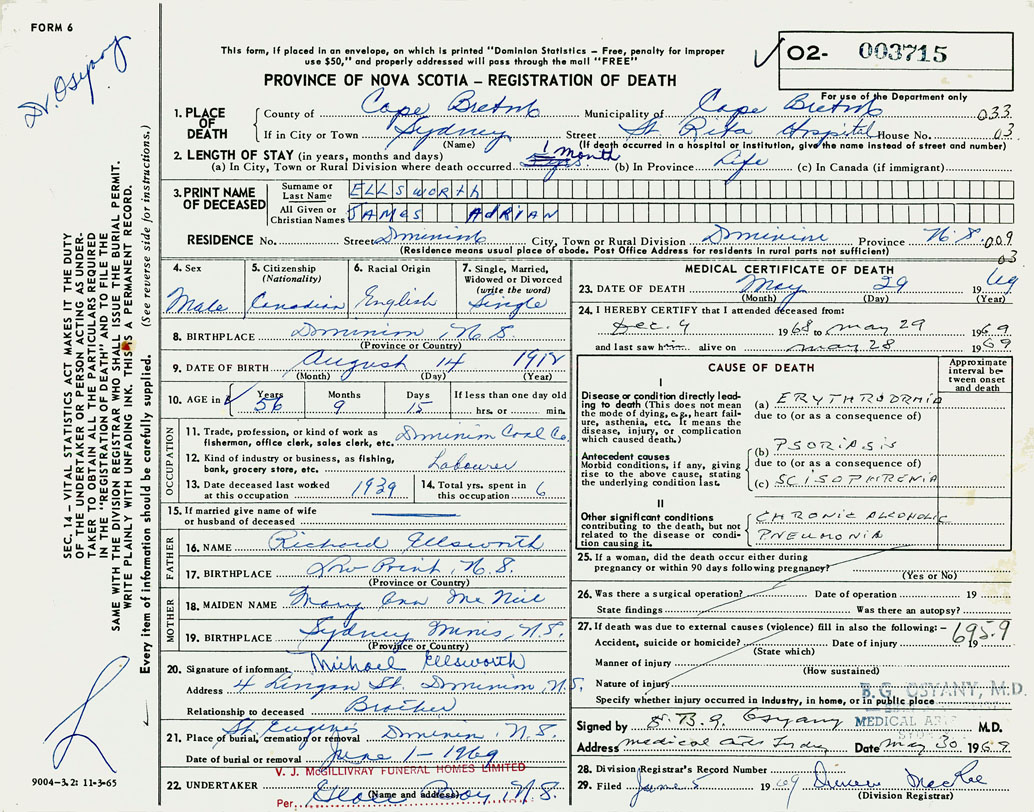 FORM 6
Dr. Osyany
This form, if placed in an envelope, on which is printed "Dominion Statistics – Free, penalty for improper
use $50," and properly addressed will pass through the mail "FREE"
PROVINCE OF NOVA SCOTIA – REGISTRATION OF DEATH
✓ 02- 003715
For use of the Department only
1. PLACE OF DEATH
County of Cape Breton Municipality of Cape Breton 033
If in City or Town Sydney Street St Rita Hospital House No. 03
(Name) (If death occurred in a hospital or institution, give the name instead of street and number)
2. LENGTH OF STAY (in years, months and days) 1 month
(a) In City, Town or Rural Division where death occurred (b) In Province Life (c) In Canada (if immigrant)
3. PRINT NAME OF DECEASED
Surname or Last Name ELLSWORTH
All Given or Christian Names JAMES ADRIAN
RESIDENCE No. Street Dominion City, Town or Rural Division Dominion Province N.S. 009
(Residence means usual place of abode. Post Office Address for residents in rural parts not sufficient) 03
4. Sex
Male
5. Citizenship
(Nationality)
Canadian
6. Racial Origin
English
7. Single, Married,
Widowed or Divorced
(write the word)
Single
8. BIRTHPLACE Dominion, N.S.
(Province or Country)
9. DATE OF BIRTH August 14 1912
(Month) (Day) (Year)
10. AGE in Years Months Days If less than one day old
56 9 15 hrs. or min.
OCCUPATION
11. Trade, profession, or kind of work as Dominion Coal Co.
fisherman, office clerk, sales clerk, etc.
12. Kind of industry or business, as fishing, Labourer
bank, grocery store, etc.
13. Date deceased last worked at this occupation 1939
14. Total yrs. spent in this occupation 6
15. If married give name of wife
or husband of deceased
FATHER
16. NAME Richard Ellsworth
17. BIRTHPLACE Low Point, N.S.
(Province or Country)
MOTHER
18. MAIDEN NAME Mary Ann Mc Neil
19. BIRTHPLACE Sydney Mines, N.S.
(Province or Country)
20. Signature of informant Michael Ellsworth
Address 4 Lingan St. Dominion, N.S.
Relationship to deceased Brother
21. Place of burial, cremation or removal St Eugene's Dominion N.S.
Date of burial or removal June 1 - 1969
V. J. McGILLIVRAY FUNERAL HOMES LIMITED
22. UNDERTAKER Glace Bay, N.S.
(Name and address)
Per
MEDICAL CERTIFICATE OF DEATH
23. DATE OF DEATH May 29 1969
(Month) (Day) (Year)
24. I HEREBY CERTIFY that I attended deceased from:
Dec. 4 1968 to May 29 1969
and last saw him alive on May 28 1969
CAUSE OF DEATH
Approximate interval between onset and death
I
Disease or condition directly leading to death (This does not mean the mode of dying, e.g., heart failure, asthenia, etc. It means the disease, injury, or complication which caused death.)
(a) ERYTHRODRMIA
due to (or as a consequence of)
Antecedent causes
Morbid conditions, if any, giving rise to the above cause, stating the underlying condition last.
(b) PSORIASIS
due to (or as a consequence of)
(c) SCISOPHRENIA
II
Other significant conditions contributing to the death, but not related to the disease or condition causing it.
CHRONIC ALCOHOLIC
PNEUMONIA
25. If a woman, did the death occur either during
pregnancy or within 90 days following pregnancy?
(Yes or No)
26. Was there a surgical operation? Date of operation 19
State findings Was there an autopsy?
27. If death was due to external causes (violence) fill in also the following: – 695.9
Accident, suicide or homicide? Date of injury 19
(State which)
Manner of injury
(How sustained)
Nature of injury
Specify whether injury occurred in industry, in home, or in public place
B. G. OSYANY, M.D.
MEDICAL ARTS
SYDNEY
Signed by B. G. Osyany M.D.
Address Medical Arts Sydney Date May 30 1969
28. Division Registrar's Record Number
29. Filed June 5 1969 MacRae
(Division Registrar)
SEC. 14 – VITAL STATISTICS ACT MAKES IT THE DUTY
OF THE UNDERTAKER OR PERSON ACTING AS UNDER-
TAKER TO OBTAIN ALL THE PARTICULARS REQUIRED
IN THE "REGISTRATION OF DEATH" AND TO FILE THE
SAME WITH THE DIVISION REGISTRAR WHO SHALL ISSUE THE BURIAL PERMIT.
WRITE PLAINLY WITH UNFADING INK. THIS IS A PERMANENT RECORD.
Every item of information should be carefully supplied. (See reverse side for instructions.)
9004-3.2: 11-3-65